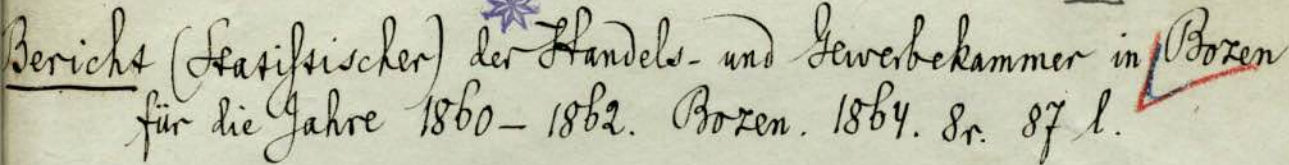 Bericht (Statistischer) der Handels- und Gewerbekammer in Bozen
für die Jahre 1860 – 1862. Bozen. 1864. 8r. 87 l.